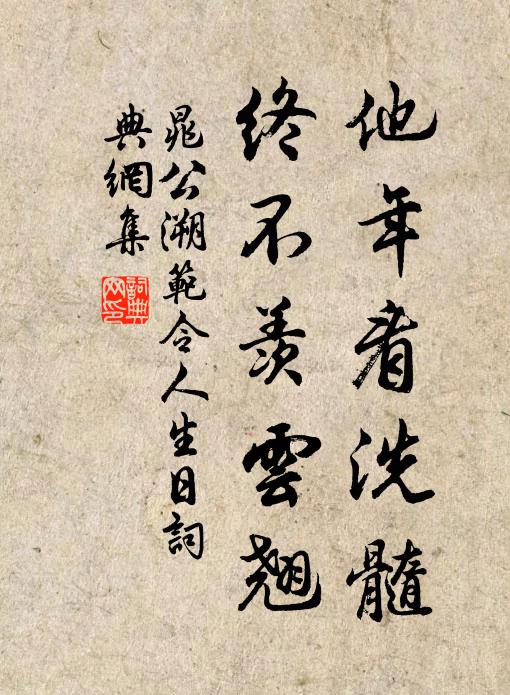 他年看洗髓
終不羨雲翹
晁公溯範令人生日詞
典網集
詞典網印